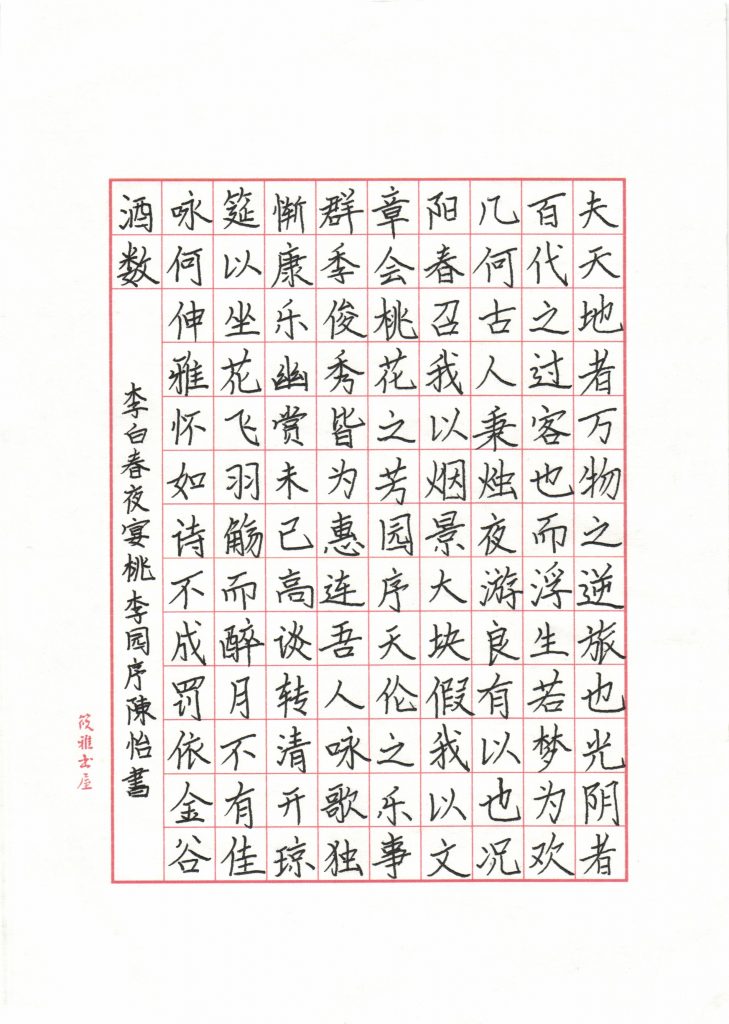 夫天地者万物之逆旅也光阴者
百代之过客也而浮生若梦为欢
几何古人秉烛夜游良有以也况
阳春召我以烟景大块假我以文
章会桃花之芳园序天伦之乐事
群季俊秀皆为惠连吾人咏歌独
惭康乐幽赏未已高谈转清开琼
筵以坐花飞羽觞而醉月不有佳
咏何伸雅怀如诗不成罚依金谷
酒数
李白春夜宴桃李园序陳怡書
筱雅书屋